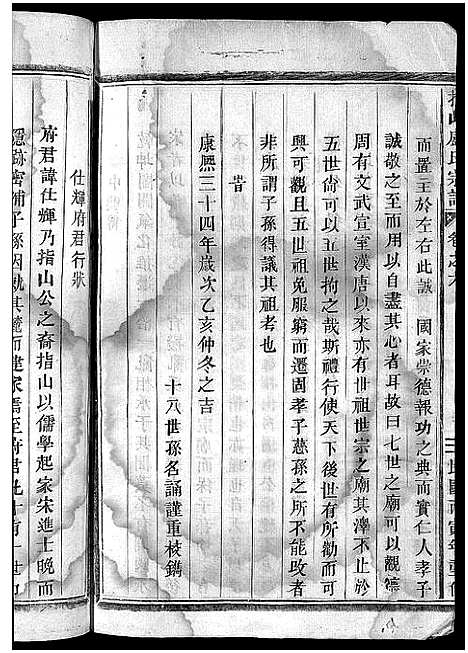 而置主於左右此誠　國家崇德報功之典而實仁人孝子
誠敬之至而用以自盡其心者耳故曰七世之廟可以觀德
周有文武宣室漢唐以來亦有世祖世宗之廟其澤不止於
五世尚可以五世拘之哉斯禮行使天下後世有所勸而有
興可觀且五世祖免服窮而遷固孝子慈孫之所不能改者
非所謂子孫得議其祖者也
昔
康熙三十四年歲次乙亥仲冬之吉
十八世孫名誦謹重梭鐫
仕輝府君行狀
府君諱仕輝乃指山公之裔指山以儒學起家宋進士晚而
隱跡密補子孫因氣其麓而建家焉至府君